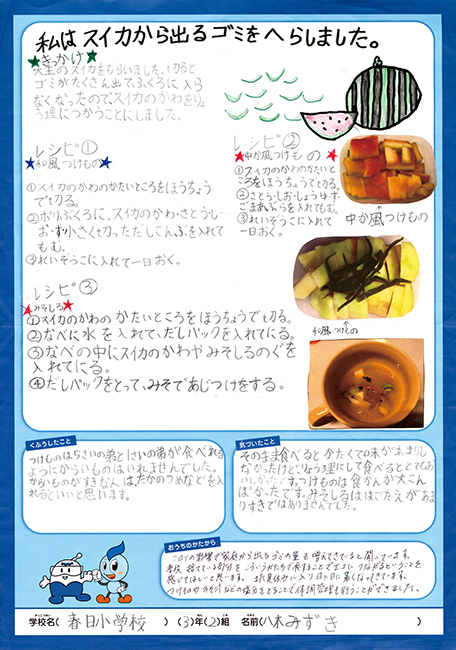 私は スイカから出る ゴミを へらしました。
★きっかけ★
大玉のスイカをもらいました。切ると
ゴミがたくさん出て、ふくろに入ら
なくなったので、スイカのかわをりょ
う理につかうことにしました。
レシピ①
★和風つけもの★
①スイカのかわのかたいところをほうちょう
で切る。
②ポリぶくろに、スイカのかわ・さとう・し
お・す・小さく切っただしこんぶを入れて
もむ。
③れいぞうこに入れて一日おく。
レシピ②
★中か風つけもの★
①スイカのかわのかたいと
ころをほうちょうで切る。
②さとう・しお・しょうゆ・す・
ごまあぶらを入れてもむ。
③れいぞうこに入れて一
日おく。
↑
中か風つけもの
↑
和風つけもの
レシピ③
★みそしる★
①スイカのかわの かたいところをほうちょうで切る。
②なべに水を入れて、だしパックを入れてにる。
③なべの中にスイカのかわや みそしるのぐを
入れてにる。
④だしパックをとって、みそであじつけをする。
くふうしたこと
つけものは5さいの弟と
さいの弟が食べれる
ようにからいものはいれませんでした。
からいものがすきな人は、たかのつめなどを入
れるといいと思います。
気づいたこと
そのまま食べるとかたくて味があまりし
なかったけど、りょう理にして食べるととてもお
いしかったです。つけものは食かんが大こん
ぽかったです。みそしるははごたえがあま
りすきではありませんでした。
おうちのかたから
コロナの影響で家庭から出るゴミの量も増えてきていると聞いています。
学校名(春日小学校) (3)年(2)組 名前(八木みずき)